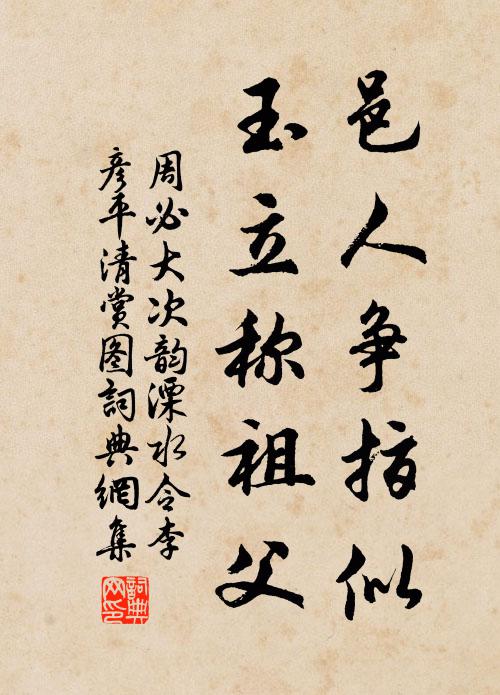 邑人争指似
玉立称祖父
周必大次韵溧水令李
彦平清赏图詞典網集
詞典网印